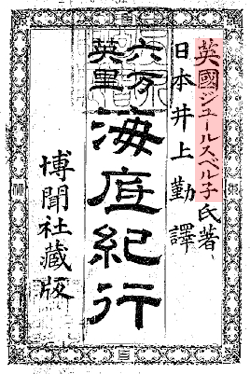 英國ジユールスベル子氏著
日本井上勤譯
六万
英里
海底紀行
博聞社藏版